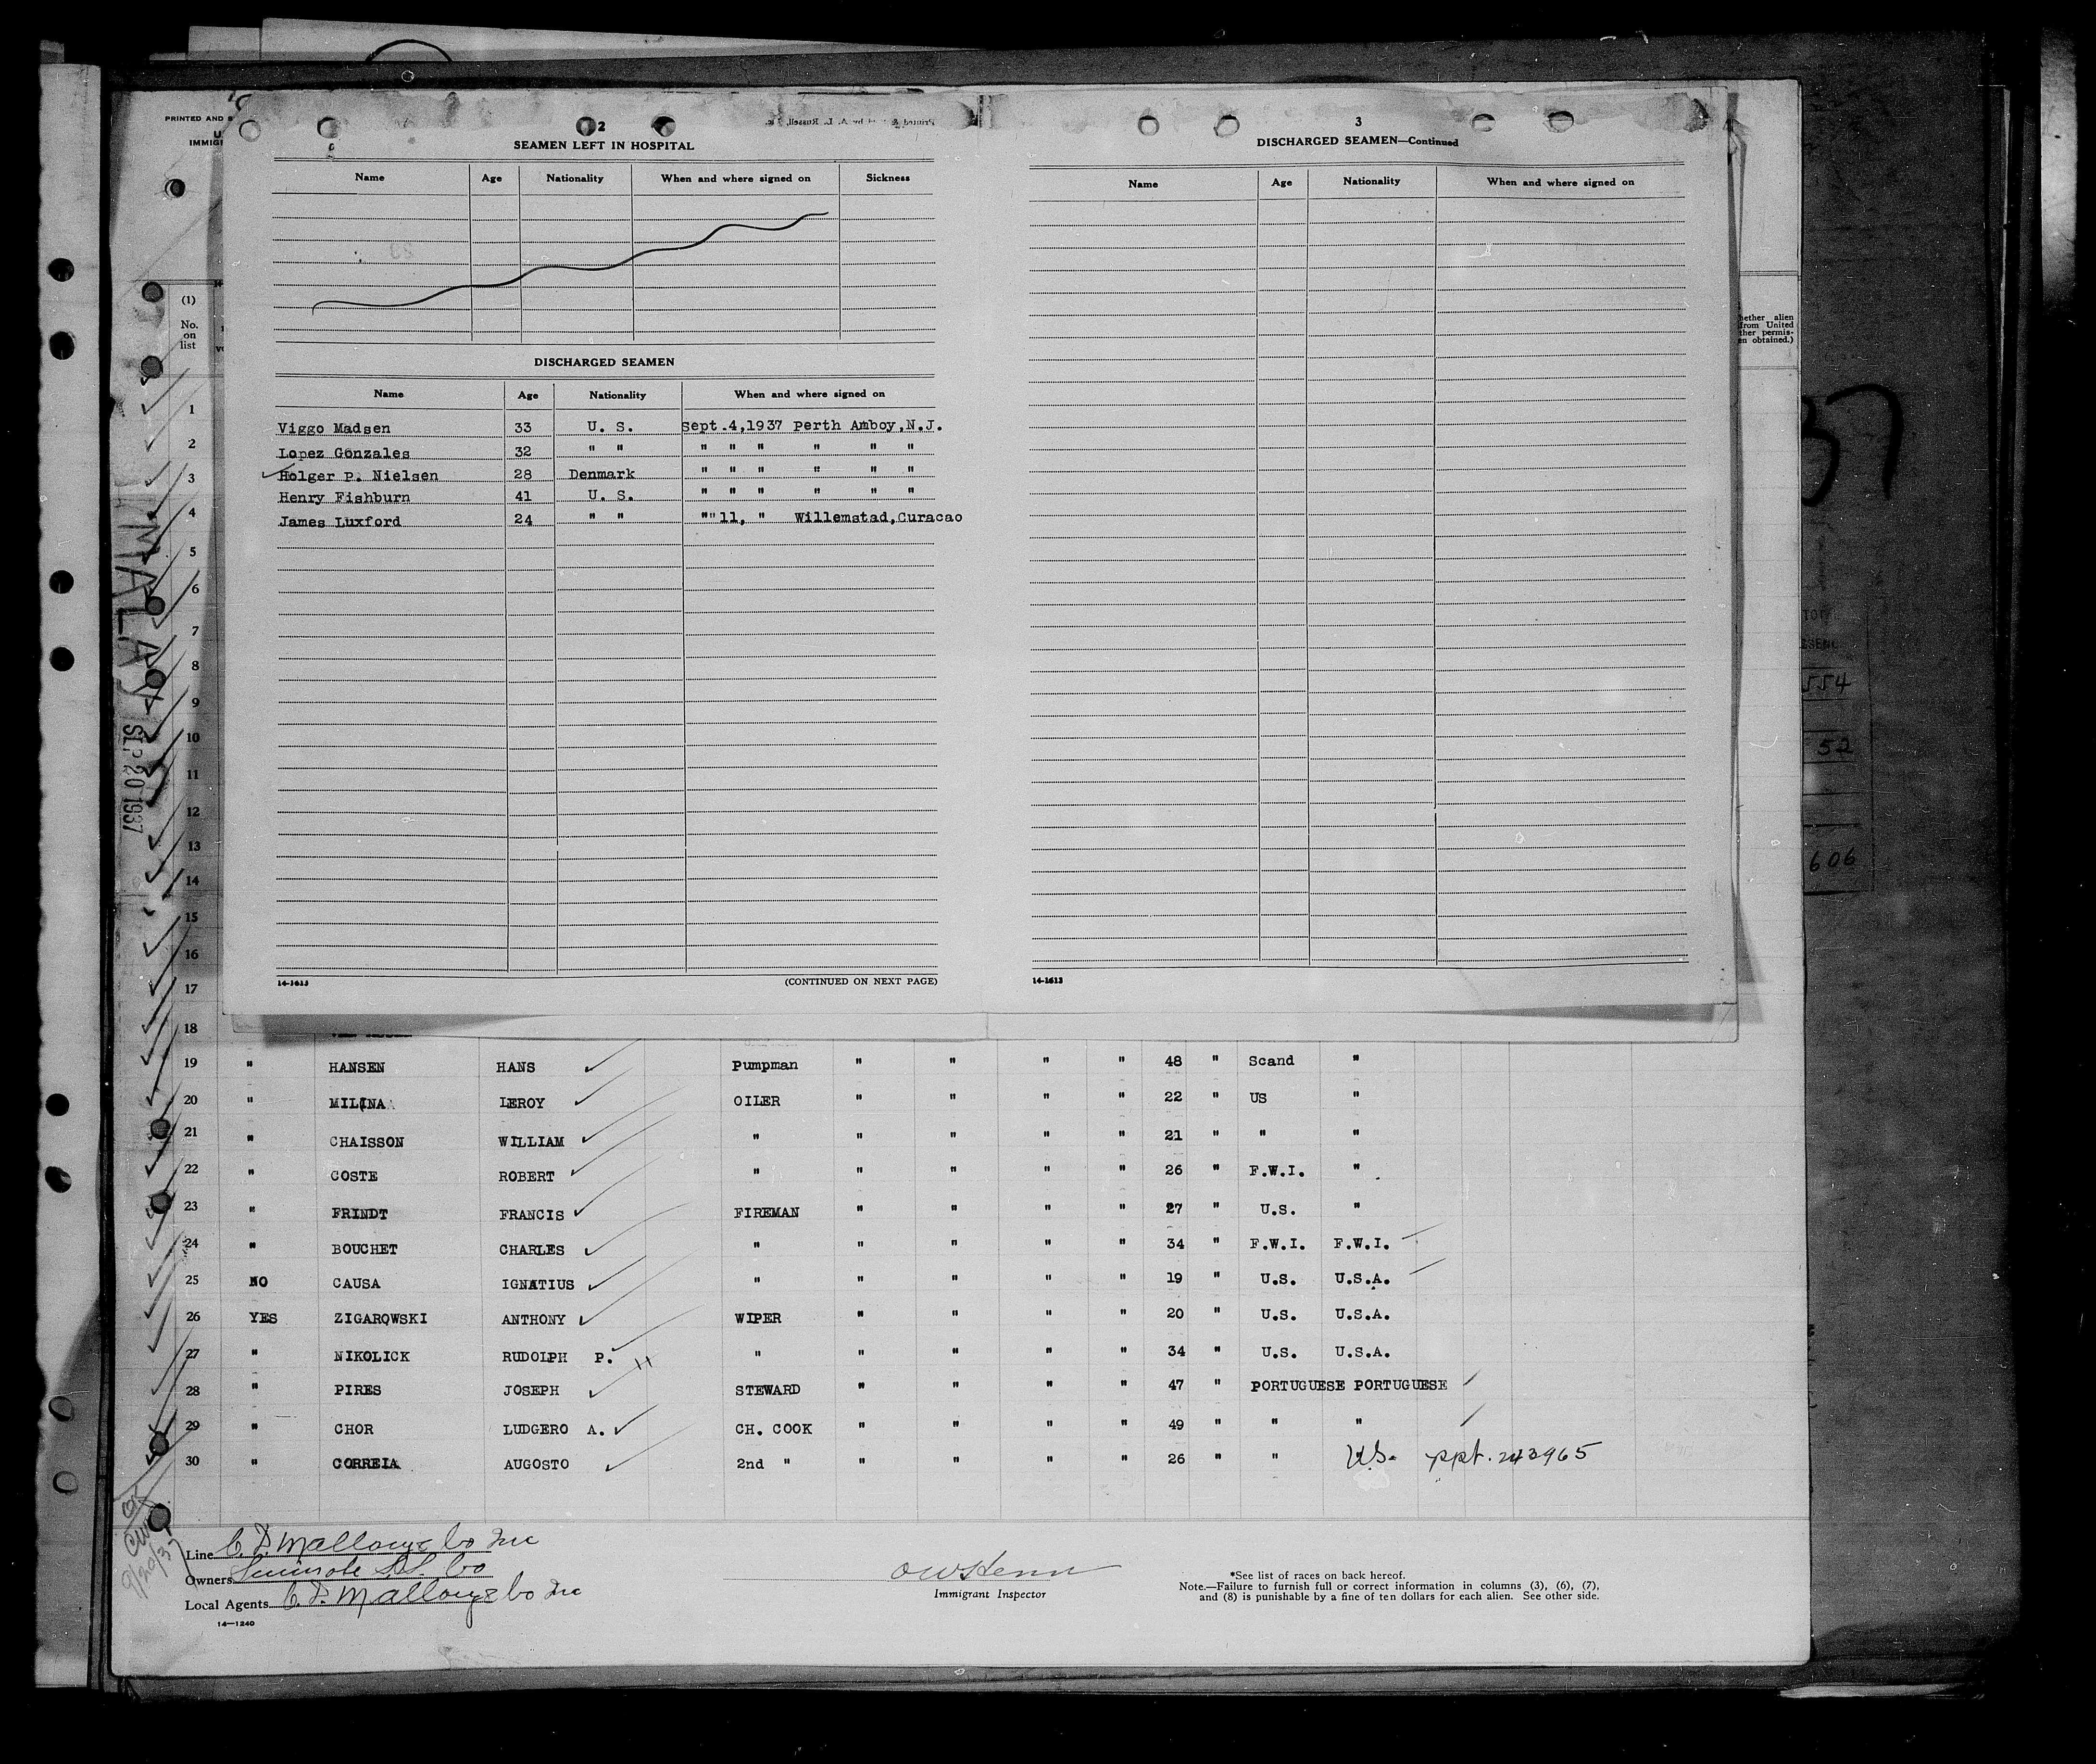 PRINTED AND
IMMIG
2
SEAMEN LEFT IN HOSPITAL
Name Age Nationality When and where signed on Sickness
DISCHARGED SEAMEN
Name Age Nationality When and where signed on
Viggo Madsen 33 U. S. Sept.4,1937 Perth Amboy,N.J.
Lopez Gonzales 32 " " " " " " " "
Holger P. Nielsen 28 Denmark " " " " " "
Henry Fishburn 41 U. S. " " " " " "
James Luxford 24 " " "" 11, " Willemstad,Curacao
14-1613 (CONTINUED ON NEXT PAGE)
3
DISCHARGED SEAMEN—Continued
Name Age Nationality When and where signed on
14-1613
(1)
No.
on
list
1
2
3
4
5
6
7
8
9
10
11
12
13
14
15
16
17
18
hether alien
from United
ther permis-
en obtained.)
MALAY
SEP 20 1937
37
554
52
606
19 " HANSEN HANS Pumpman " " " " 48 " Scand "
20 " MILINA LEROY OILER " " " " 22 " US "
21 " CHAISSON WILLIAM " " " " " 21 " " "
22 " COSTE ROBERT " " " " " 26 " F.W.I. "
23 " FRINDT FRANCIS FIREMAN " " " " 27 " U.S. "
24 " BOUCHET CHARLES " " " " " 34 " F.W.I. F.W.I.
25 NO CAUSA IGNATIUS " " " " " 19 " U.S. U.S.A.
26 YES ZIGAROWSKI ANTHONY WIPER " " " " 20 " U.S. U.S.A.
27 " NIKOLICK RUDOLPH P. " " " " " 34 " U.S. U.S.A.
28 " PIRES JOSEPH STEWARD " " " " 47 " PORTUGUESE PORTUGUESE
29 " CHOR LUDGERO A. CH. COOK " " " " 49 " " "
30 " CORREIA AUGOSTO 2nd " " " " " 26 " " U.S. ppt. 243965
9/20/37
Line C. D. Mallory & Co Inc
Owners Seminole S.S. Co
Local Agents C. D. Mallory & Co Inc
14—1240
Immigrant Inspector
*See list of races on back hereof.
Note.—Failure to furnish full or correct information in columns (3), (6), (7),
and (8) is punishable by a fine of ten dollars for each alien. See other side.